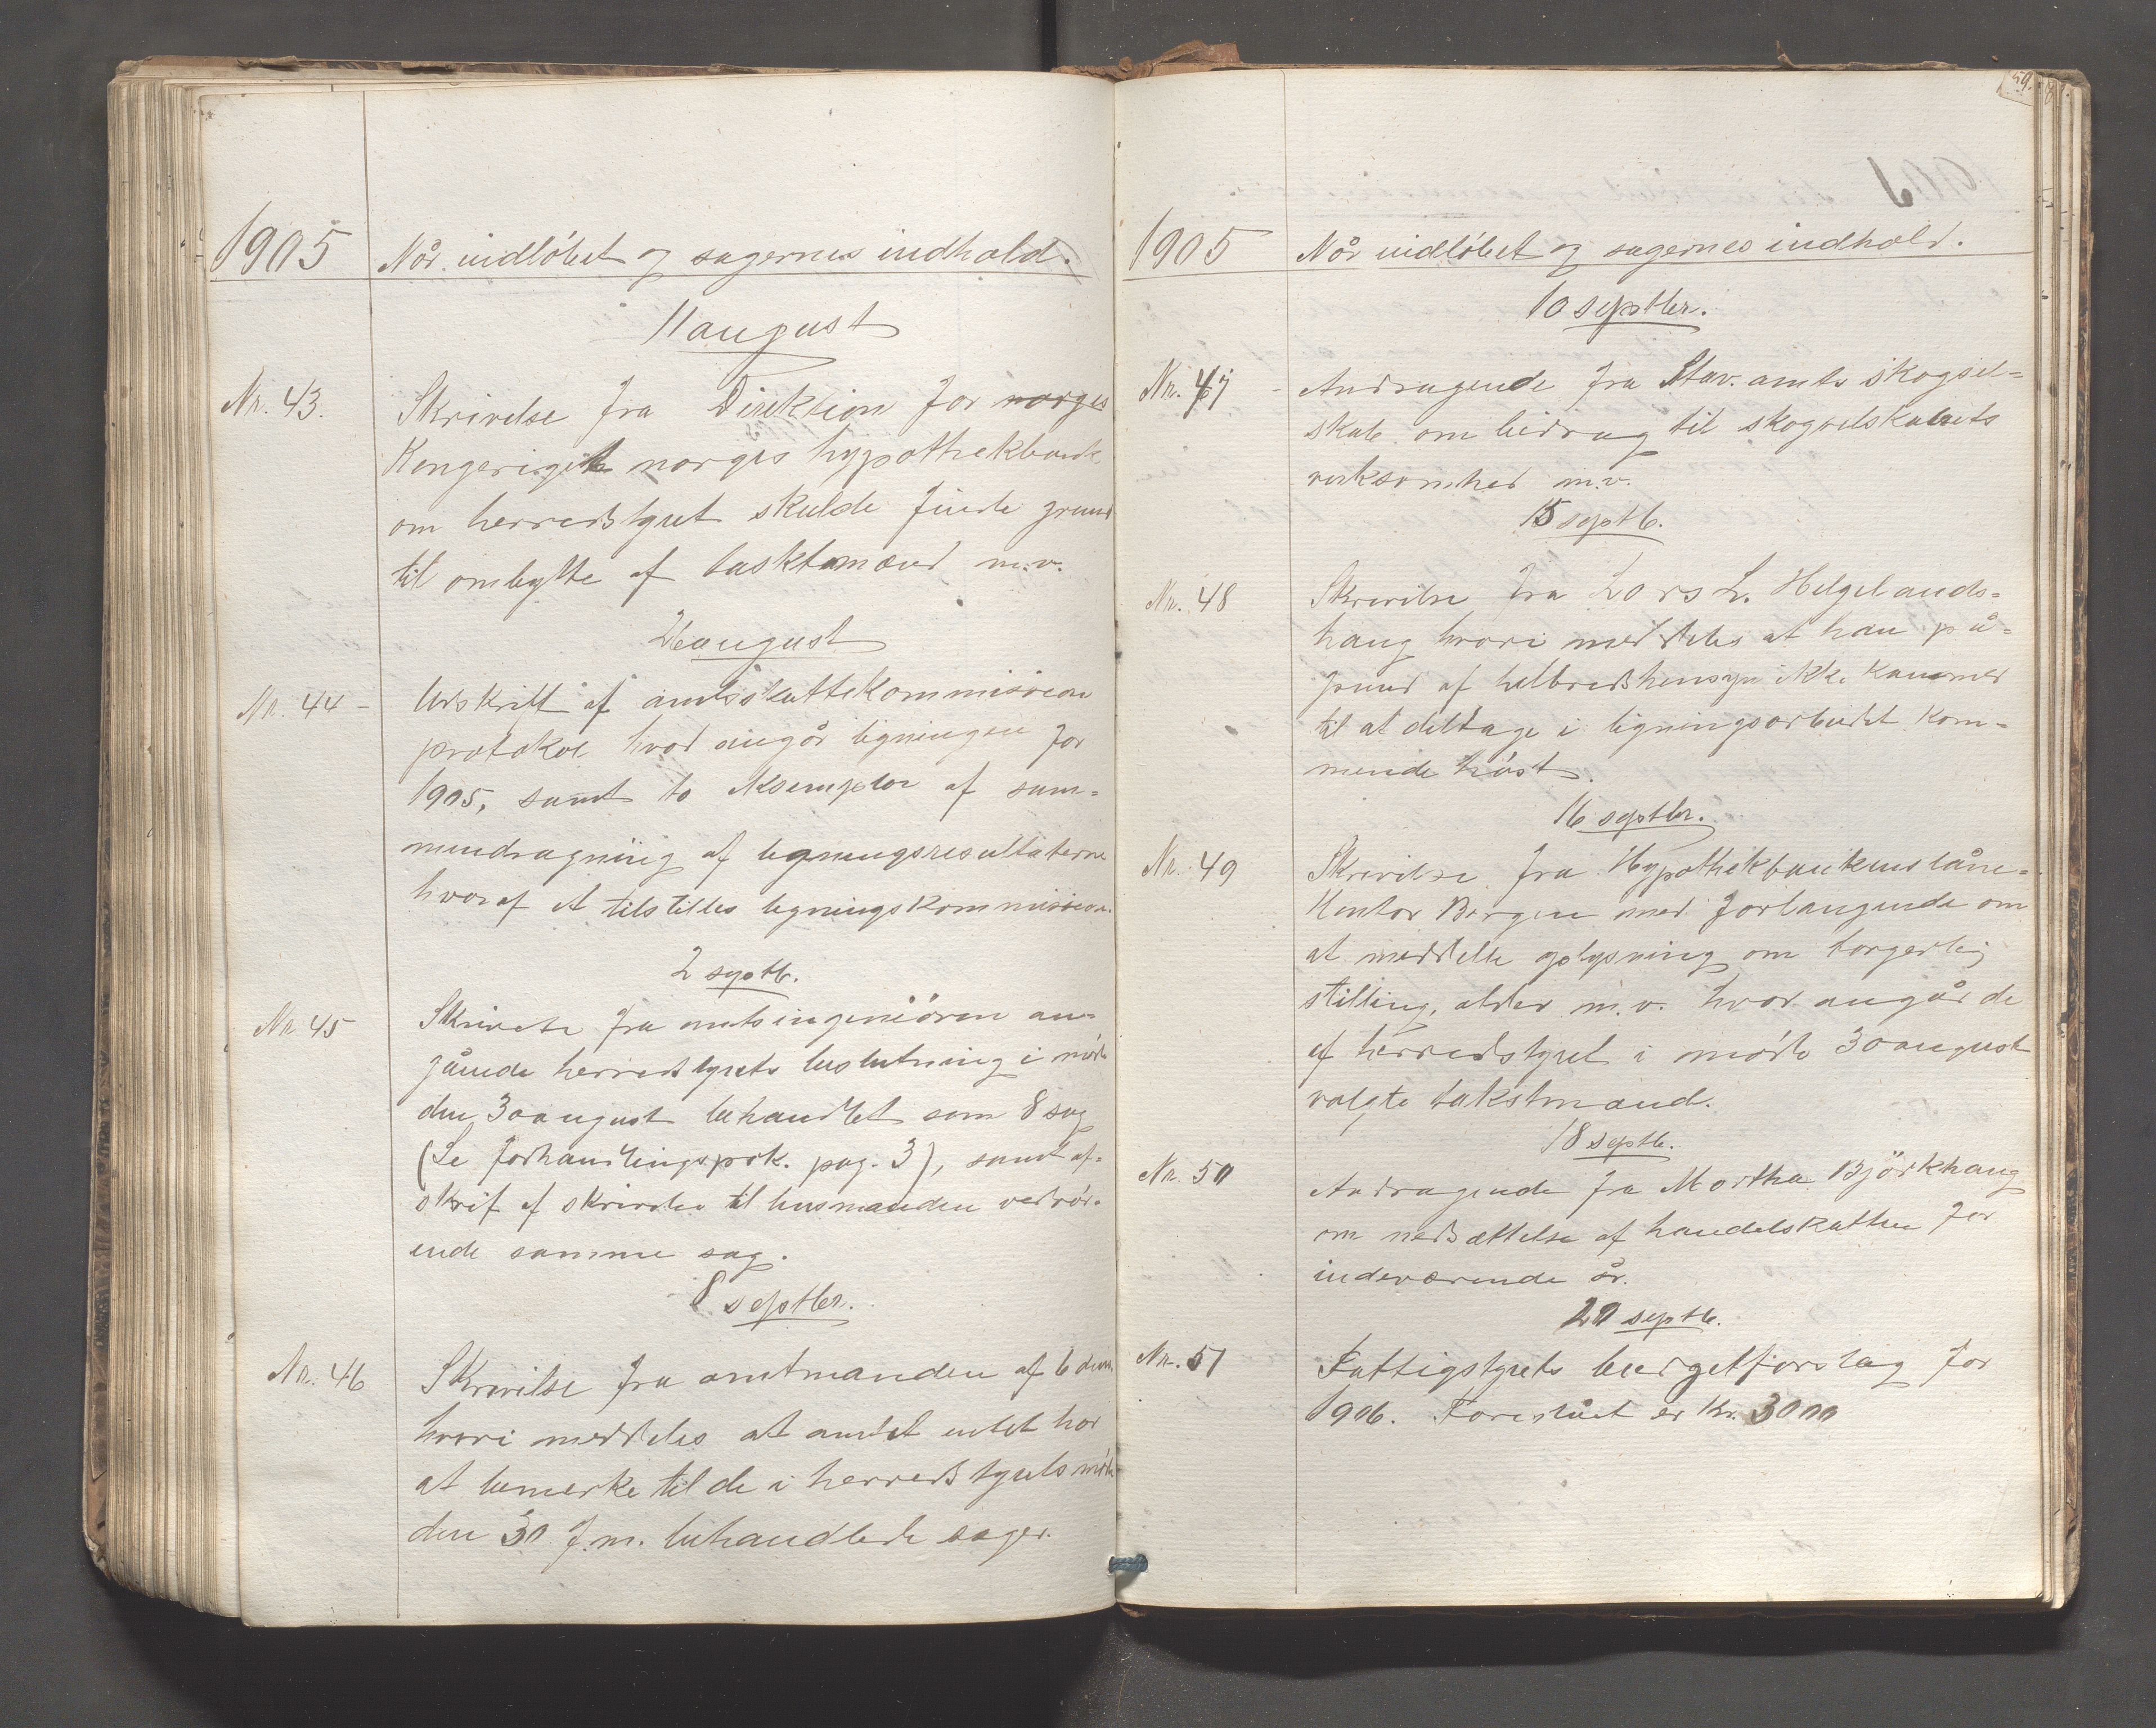 1905
Når indløbet og sagernes indhold.
11 august
Nr. 43.
Skrivelse fra Direktion for norges
Kongeriget norges hypothekbank
om herredstyret skulde finde grund
til ombytte af takstmænd m.v.
26 august
Nr. 44 -
Udskrift af amtsskattekommission
protokol hvad angår ligningen for
1905, samt to eksemplar af sam=
mendragning af ligningsresultaterne
hvoraf et tilstilles ligningskommission.
2 septb.
Nr 45
Skrivelse fra amtsingeniøren an=
gående herredstyrets beslutning i møde
den 30 august behandlet som 8 sag
(Se forhandlingsprk. pag. 3), samt af=
skrif af skrivelse til lensmanden vedrør=
ende samme sag.
8 septbr.
Nr. 46
Skrivelse fra amtmanden af 6 dennes
hvori meddeles at amtet intet har
at bemerke til de i herredstyrets møde
den 30 f.m. behandlede sager.
59.
1905
Når indløbet og sagernes indhold.
10 septbr.
Nr. 47 -
Andragende fra Stav. amts skogsel=
skab om bidrag til skogselskabets
virksomhed m.v.
15 septb.
Nr. 48
Skrivelse fra Lars L. Helgelands=
haug hvori meddeles at han på=
grund af helbredshensyn ikke kan med
til at deltage i ligningsarbeidet kom=
mende høst.
16 septbr.
Nr. 49
Skrivelse fra Hypothekbankens låne=
kontor Bergen med forlangende om
at meddelle oplysning om borgerlig
stilling, alder m.v. hvad angår de
af herredstyret i møde 30 august
valgte takstmænd.
18 septb.
Nr. 50
Andragende fra Martha Bjørkhaug
om nedsættelse af handelskatten for
indeværende år.
20 septb.
Nr. 51
Fattigstyrets budgetforslag for
1906. Foreslået er Kr. 3000